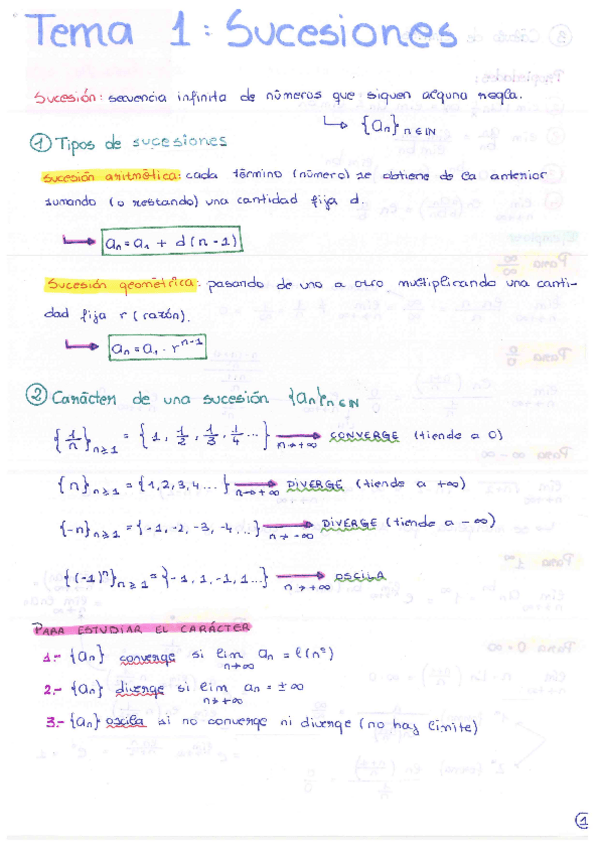 Tema 1: Sucesiones
Sucesión: secuencia infinita de números que siguen alguna regla.
↳ {an}n∈ℕ
① Tipos de sucesiones
Sucesión aritmética: cada término (número) se obtiene de la anterior
sumando (o restando) una cantidad fija d.
→ an = a1 + d(n-1)
Sucesión geométrica: pasando de uno a otro multiplicando una canti-
dad fija r (razón).
→ an = a1 · r^(n-1)
② Carácter de una sucesión {an}n∈ℕ
{1/n}n≥1 = {1, 1/2, 1/3, 1/4 ...} → n→+∞ CONVERGE (tiende a 0)
{n}n≥1 = {1,2,3,4...} → n→+∞ DIVERGE (tiende a +∞)
{-n}n≥1 = {-1, -2, -3, -4...} → n→-∞ DIVERGE (tiende a -∞)
{(-1)^n}n≥1 = {-1, 1, -1, 1...} → n→+∞ OSCILA
PARA ESTUDIAR EL CARÁCTER
1.- {an} converge si lim n→∞ an = ℓ (nº)
2.- {an} diverge si lim n→+∞ an = ±∞
3.- {an} oscila si no converge ni diverge (no hay límite)
1